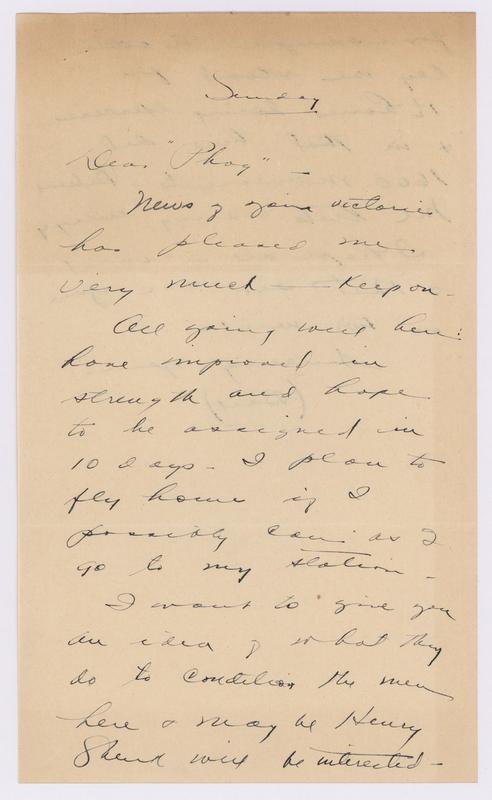 Sunday
Dear "Phog" -
News of your victories
has pleased me
very much — Keep on -
All going well here:
have improved in
strength and hope
to be assigned in
10 days - I plan to
fly home if I
possibly can: as I
go to my station -
I want to give you
an idea of what they
do to condition the men
here & may be Henry
Shenk will be interested -